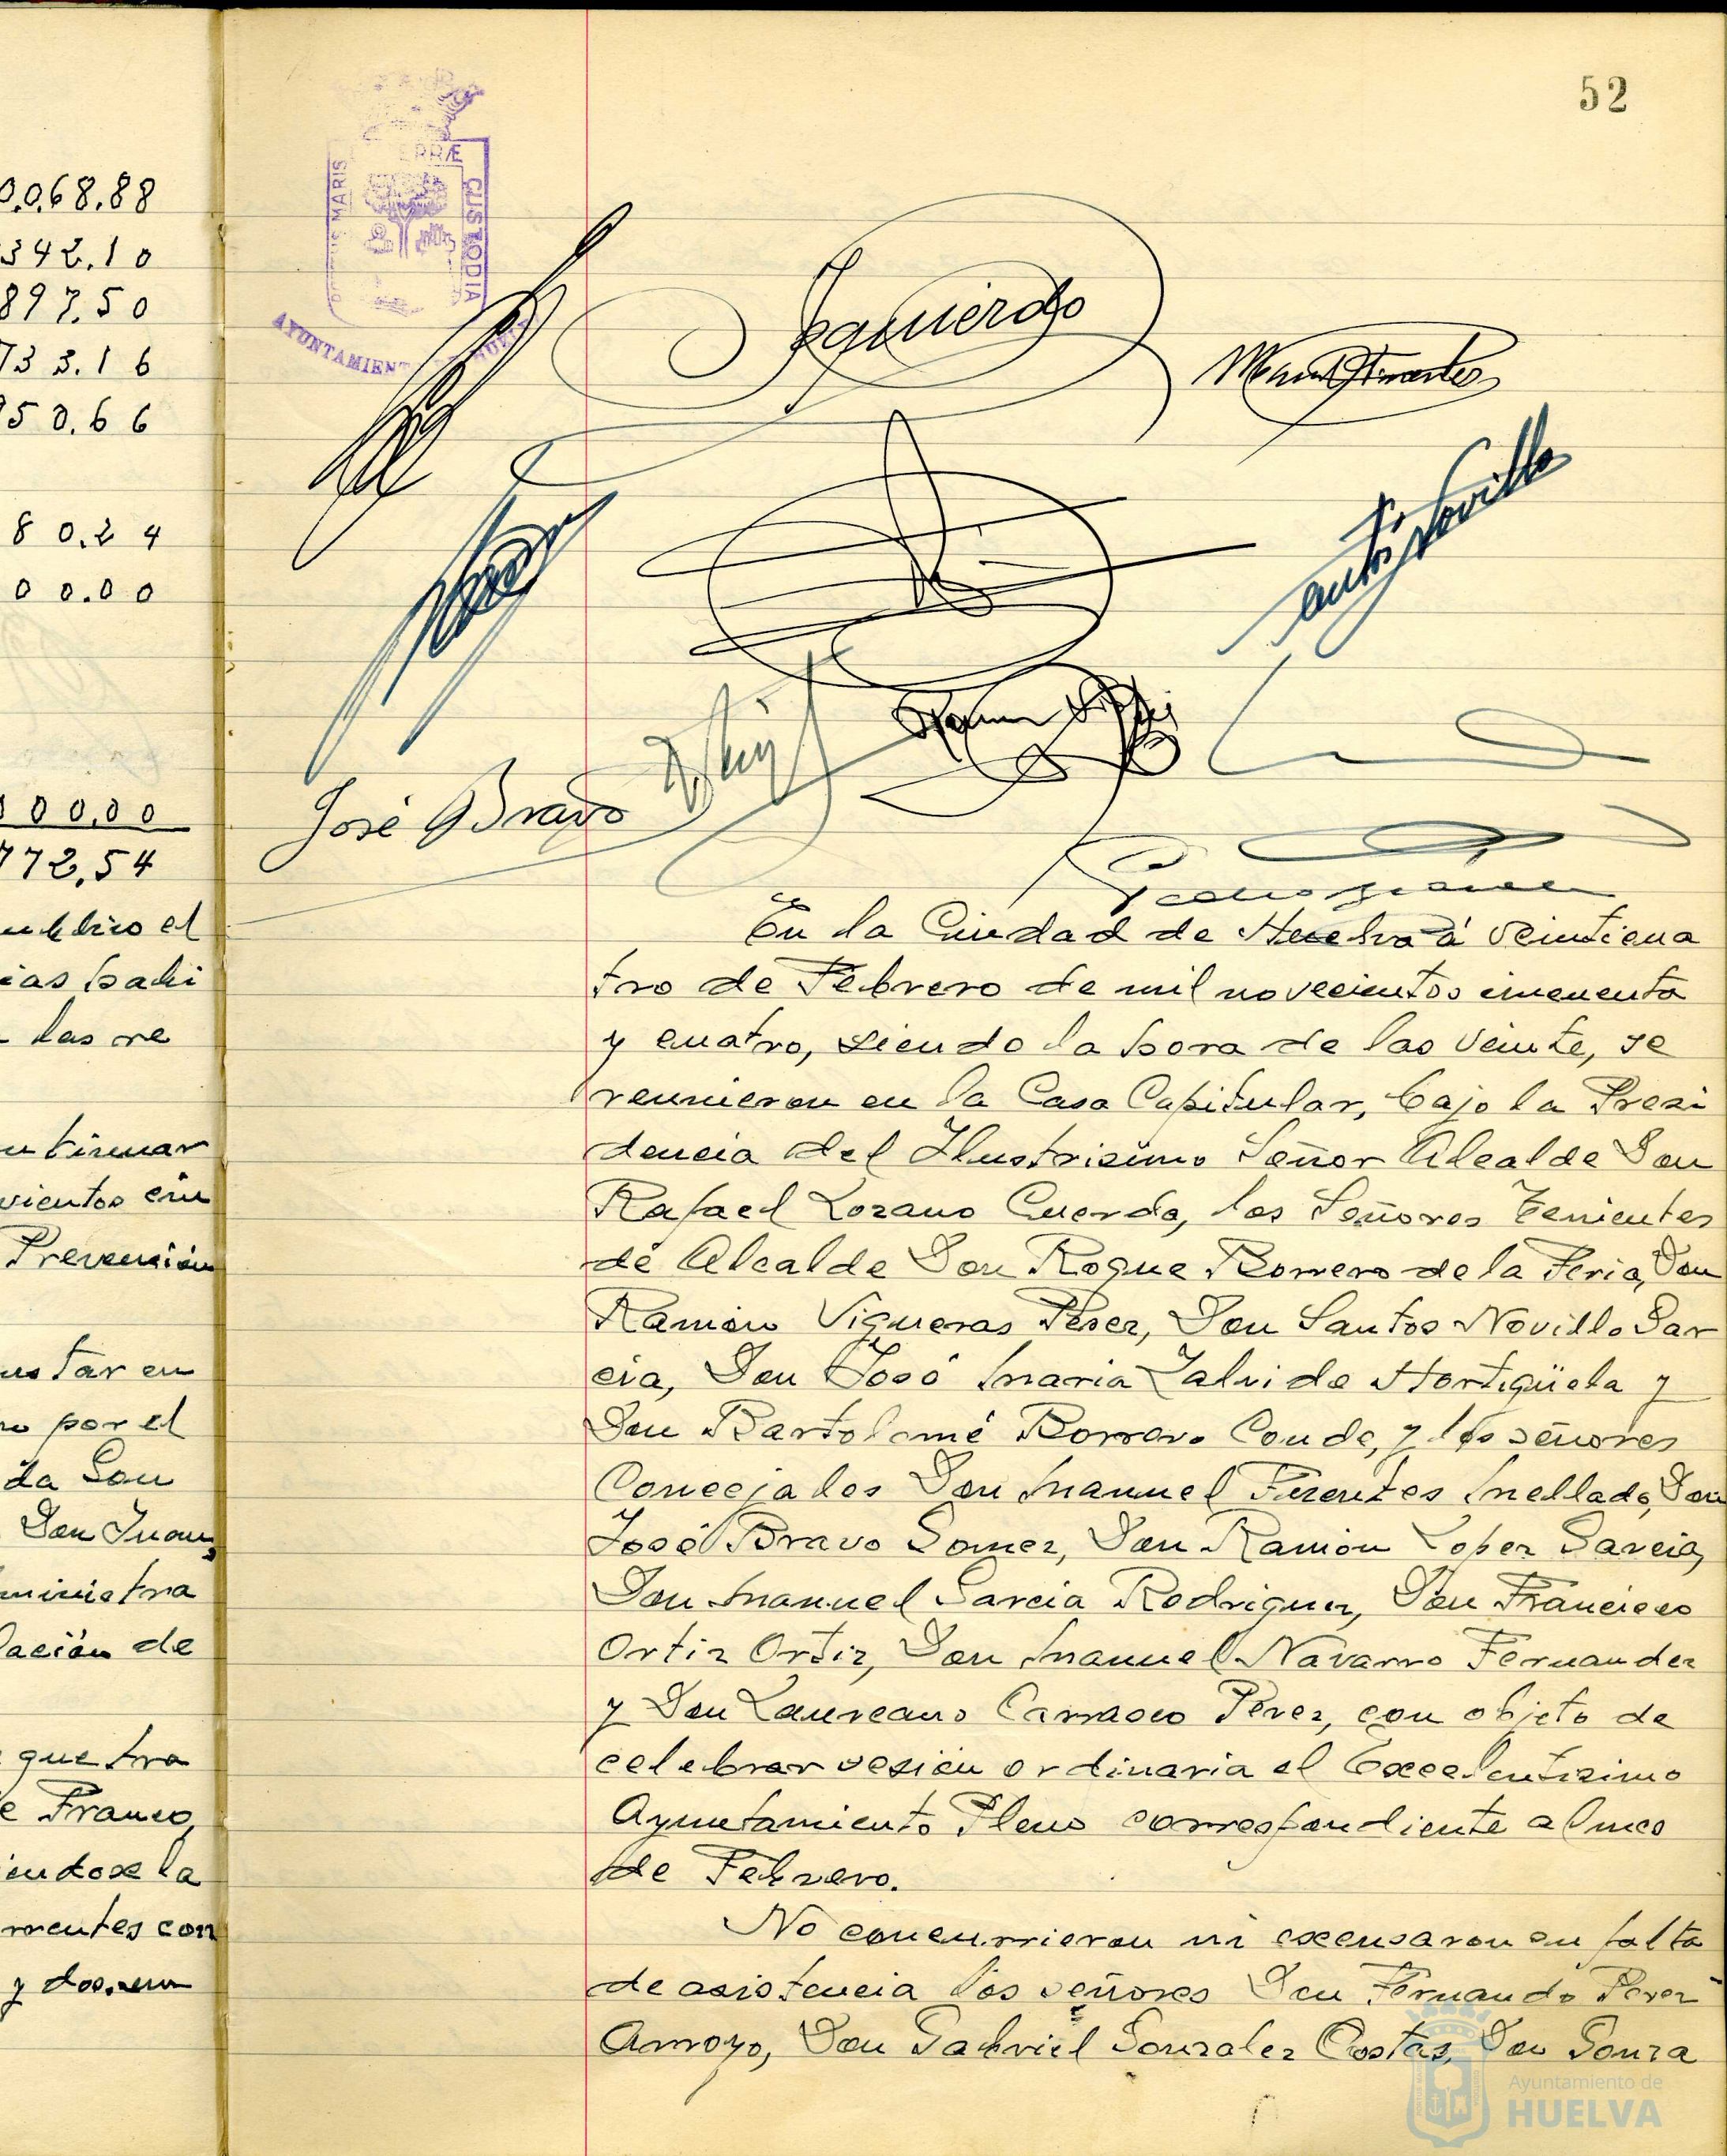 0.068.88
342.10
897.50
733.16
950.66
80.24
00.00
00.00
772.54
el
las re
Prevención
tar en
por el
da Don
Don Juan,
ministra
lación de
que tra
e Franco,
iendose la
rrentes con
52
TERRÆ
MARIS
CUSTODIA
AYUNTAMIENTO DE HUELVA
Izquierdo
Manuel Fuentes
Santos Novillo
José Bravo
En la Ciudad de Huelva á veinticua
tro de Febrero de mil novecientos cincuenta
y cuatro, siendo la hora de las veinte, se
reunieron en la Casa Capitular, bajo la Presi
dencia del Ilustrisimo Señor Alcalde Don
Rafael Lozano Cuerda, los Señores Tenientes
de Alcalde Don Roque Romero de la Feria, Don
Ramón Vigueras Pérez, Don Santos Novillo Gar
cia, Don José Maria Zalvide Hortigüela y
Don Bartolomé Borrero Conde, y los señores
Concejales Don Manuel Fuentes Mellado, Don
José Bravo Gomez, Don Ramón Lopez Garcia,
Don Manuel Garcia Rodriguez, Don Francisco
Ortiz Ortiz, Don Manuel Navarro Fernandez
y Don Laureano Carrasco Pérez, con objeto de
celebrar sesión ordinaria el Excelentisimo
Ayuntamiento Pleno correspondiente al mes
de Febrero.
No concurrieron ni excusaron su falta
de asistencia los señores Don Fernando Perez
Arroyo, Don Gabriel Gonzalez Costas, Don Gonza
Ayuntamiento de
HUELVA